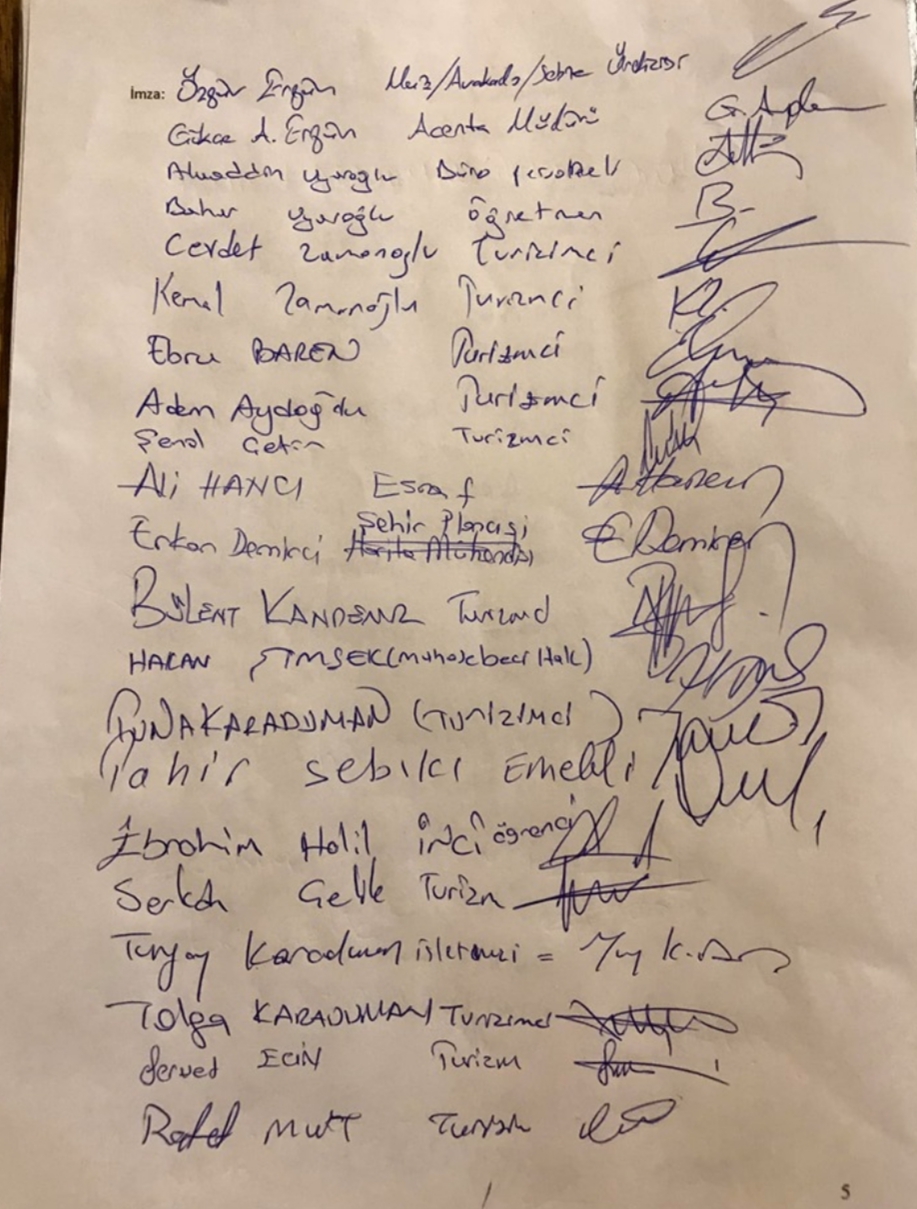 İmza: Özgür Ergün Muz/Avokado/Sebze Üreticisi
Gökçe A. Ergün Acenta Müdürü
Alaaddin Yaroglu Büro personeli
Bahar Yaroğlu Öğretmen
Cevdet Zamanoglu Turizimci
Kemal Zamanoğlu Turizmci
Ebru BAREN Turizmci
Adem Aydoğdu Turizmci
Şenol Çetin Turizmci
Ali HANCI Esnaf
Şehir Plancısı
Erkan Demirci Harita Mühendisi E Demirci
BÜLENT KANDEMİR Turizmci
HAKAN ŞİMŞEK (Muhasebeci Halk)
TUNA KARADUMAN (TURİZİMCİ)
Tahir sebilci Emekli
İbrahim Halil İNCİ öğrenci
Serkan Çelik Turizm
Turgay Karaduman işletmeci =
Tolga KARADUMAN Turizmci
Served ECİN Turizm
MUTT Turizm
5